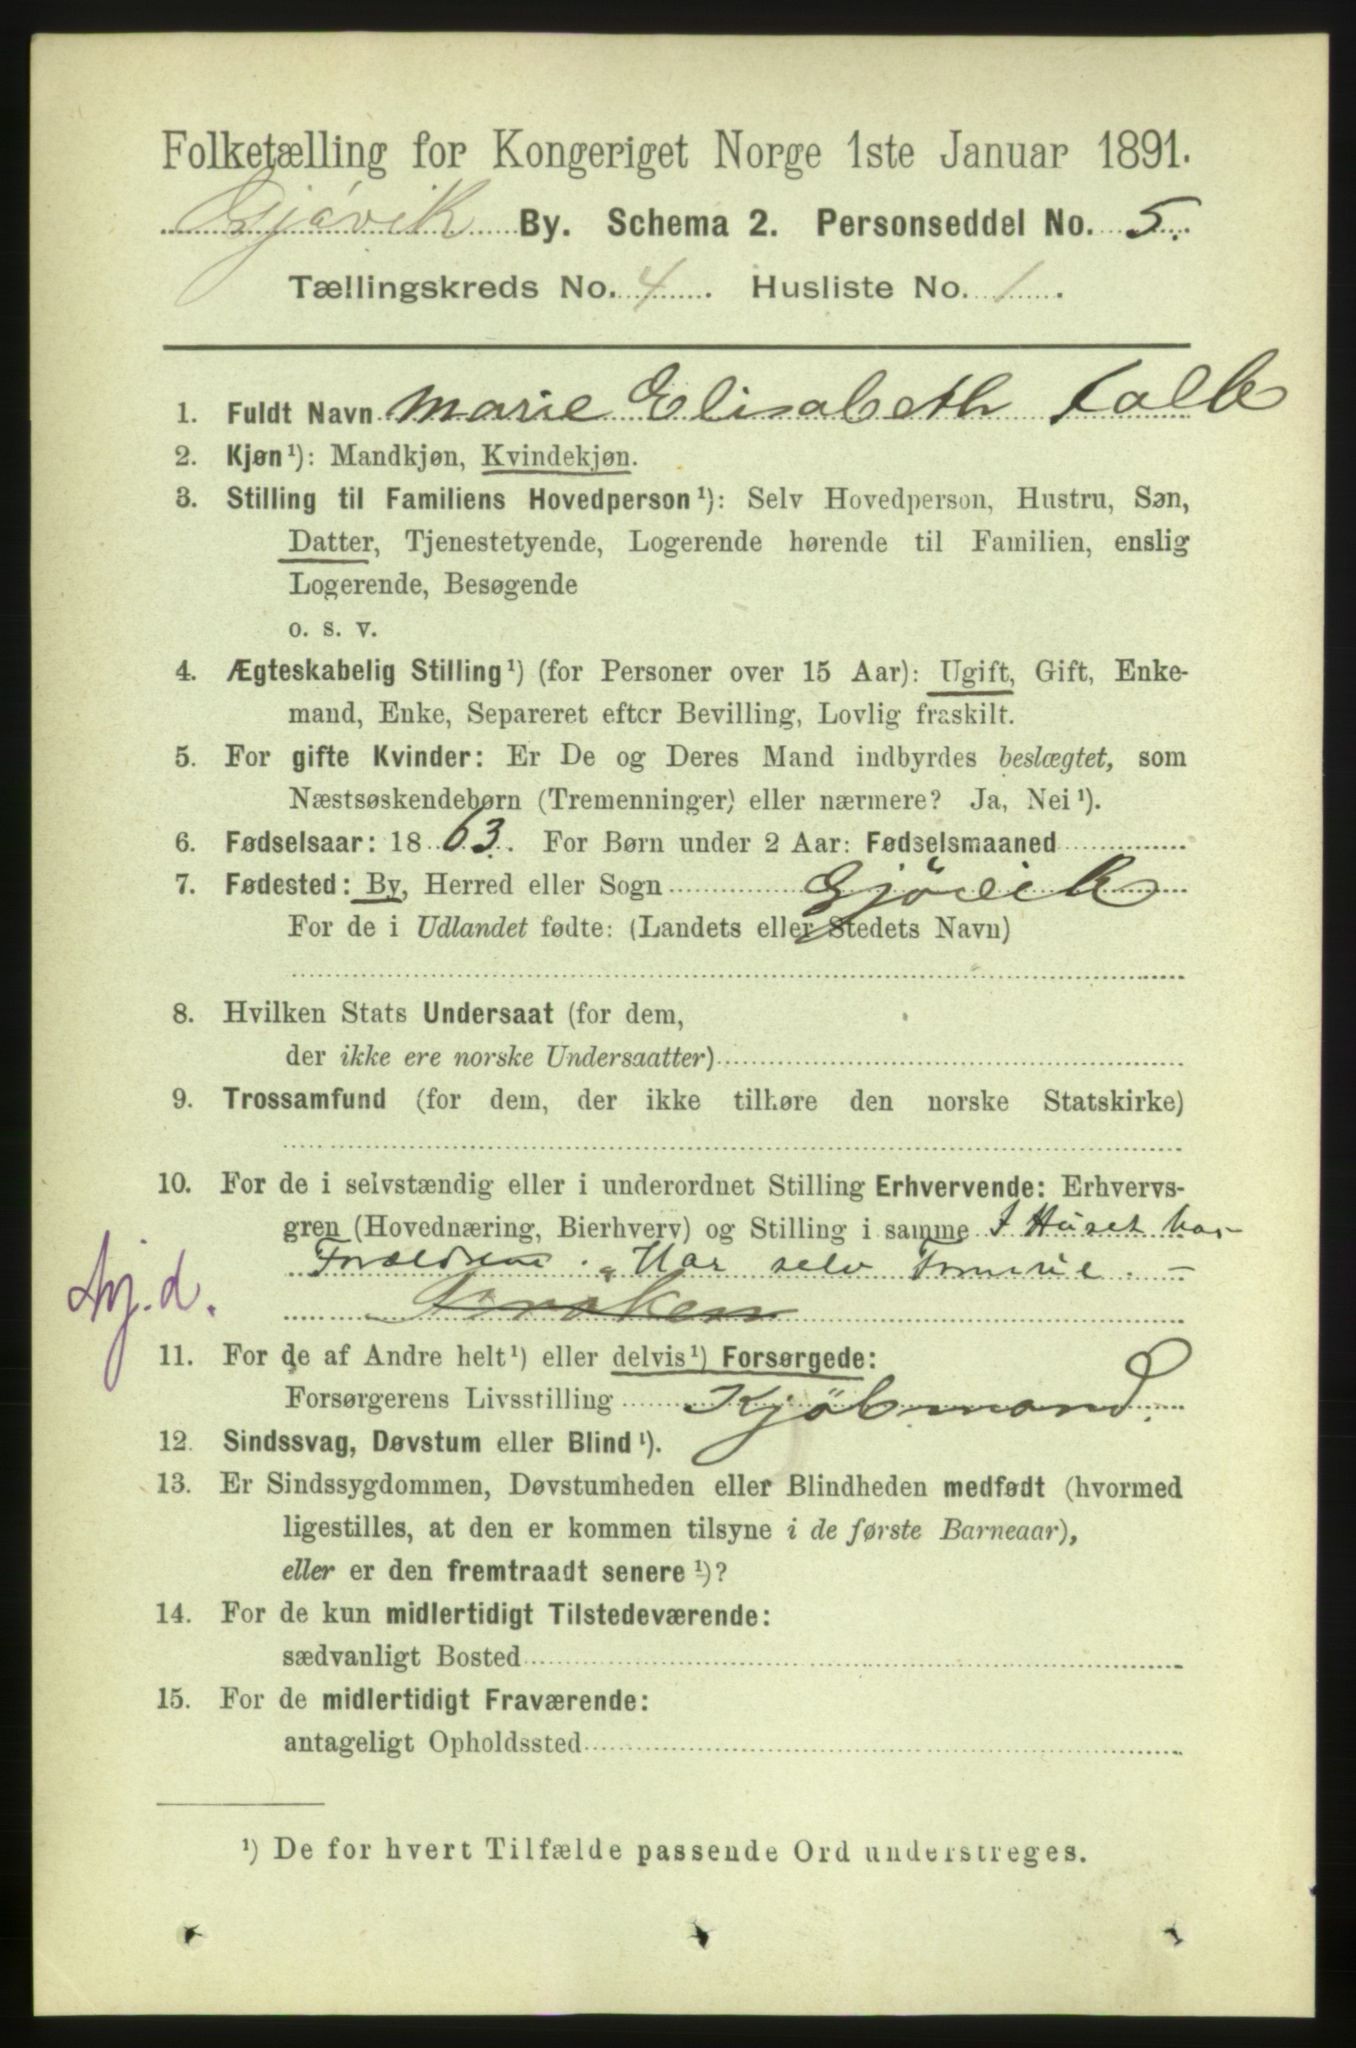 Folketælling for Kongeriget Norge 1ste Januar 1891.
Gjøvik By. Schema 2. Personseddel No. 5.
Tællingskreds No. 4. Husliste No. 1.
1. Fuldt Navn Marie Elisabeth Falk
2. Kjøn¹): Mandkjøn, Kvindekjøn.
3. Stilling til Familiens Hovedperson¹): Selv Hovedperson, Hustru, Søn,
Datter, Tjenestetyende, Logerende hørende til Familien, enslig
Logerende, Besøgende
o. s. v.
4. Ægteskabelig Stilling¹) (for Personer over 15 Aar): Ugift, Gift, Enke-
mand, Enke, Separeret efter Bevilling, Lovlig fraskilt.
5. For gifte Kvinder: Er De og Deres Mand indbyrdes beslægtet, som
Næstsøskendebørn (Tremenninger) eller nærmere? Ja, Nei¹).
6. Fødselsaar: 1863. For Børn under 2 Aar: Fødselsmaaned
7. Fødested: By, Herred eller Sogn Gjövik
For de i Udlandet fødte: (Landets eller Stedets Navn)
8. Hvilken Stats Undersaat (for dem,
der ikke ere norske Undersaatter)
9. Trossamfund (for dem, der ikke tilhøre den norske Statskirke)
10. For de i selvstændig eller i underordnet Stilling Erhvervende: Erhvervs-
gren (Hovednæring, Bierhverv) og Stilling i samme I Huset hos
Forældrene. Har selv Formue. —
Frøken
hj. d.
11. For de af Andre helt¹) eller delvis¹) Forsørgede:
Forsørgerens Livsstilling Kjöbmand.
12. Sindssvag, Døvstum eller Blind¹).
13. Er Sindssygdommen, Døvstumheden eller Blindheden medfødt (hvormed
ligestilles, at den er kommen tilsyne i de første Barneaar),
eller er den fremtraadt senere¹)?
14. For de kun midlertidigt Tilstedeværende:
sædvanligt Bosted
15. For de midlertidigt Fraværende:
antageligt Opholdssted
¹) De for hvert Tilfælde passende Ord understreges.